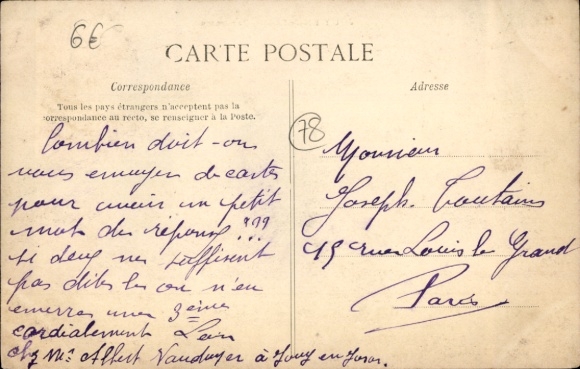 6€
CARTE POSTALE
Correspondance
Tous les pays étrangers n'acceptent pas la
correspondance au recto, se renseigner à la Poste.
Combien doit-on
vous envoyer de cartes
pour avoir un petit
mot de réponse "??
si deux ne suffisent
pas dites le on n'en
enverra une 3ème
cordialement
chez Mr Albert Vauduyer à Jouy en Josas.
Adresse
78
Monsieur
Joseph Toutains
15 rue Louis le Grand
Paris